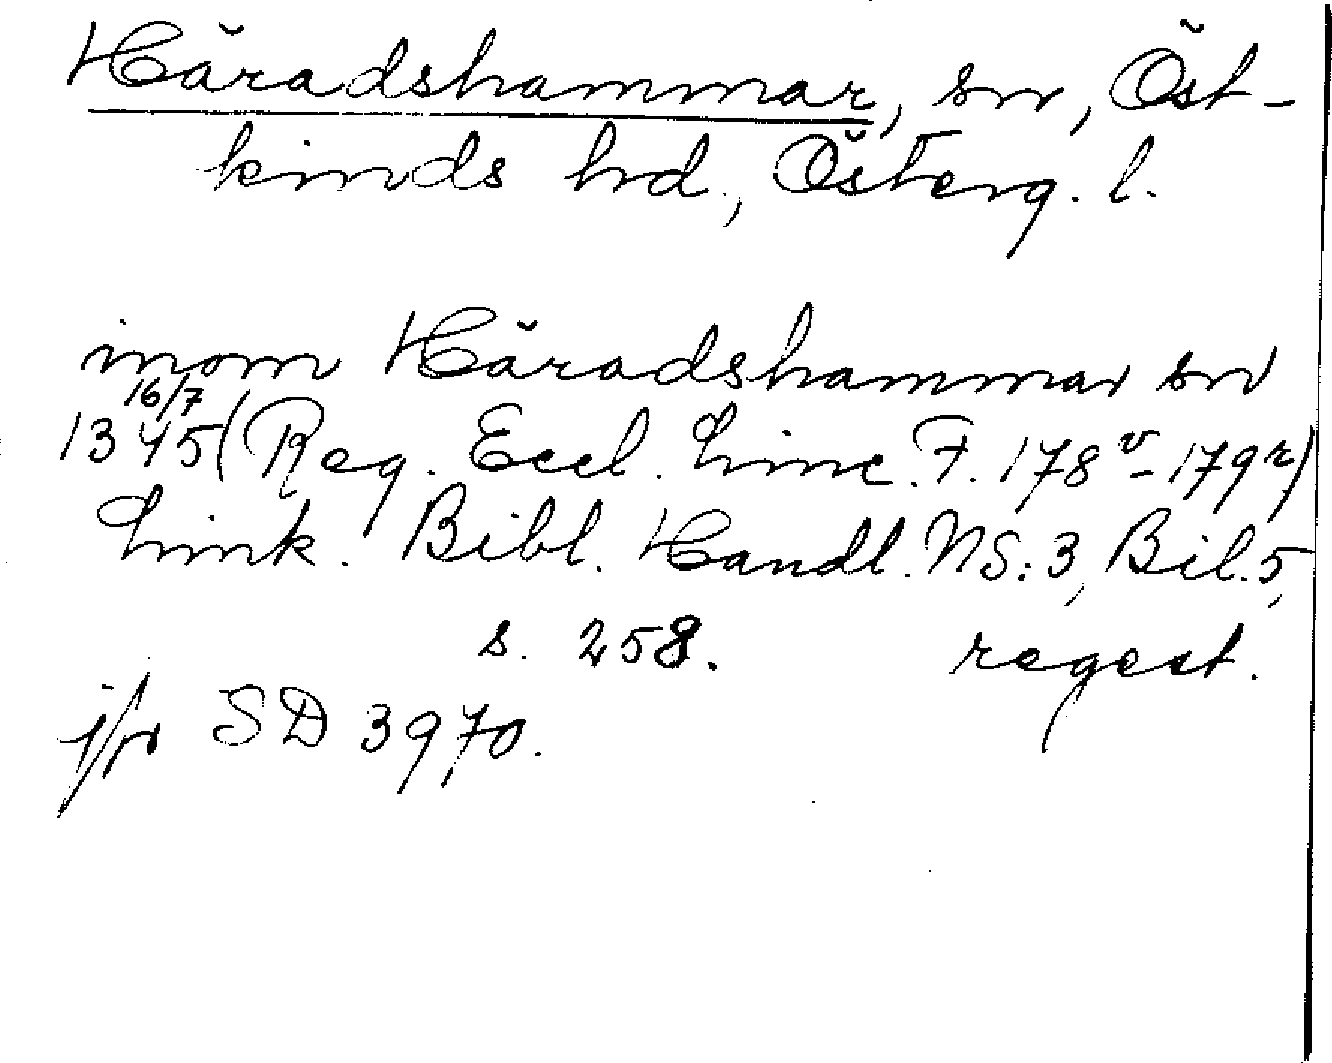 Häradshammar, sn, Öst-
kinds hd., Österg. l.
inom Häradshammar sn
16/7
1345 (Reg. Eccl. Linc. F. 178v-179r)
Link. Bibl. Handl. NS: 3, Bil. 5,
s. 258. regest.
jfr SD 3970.